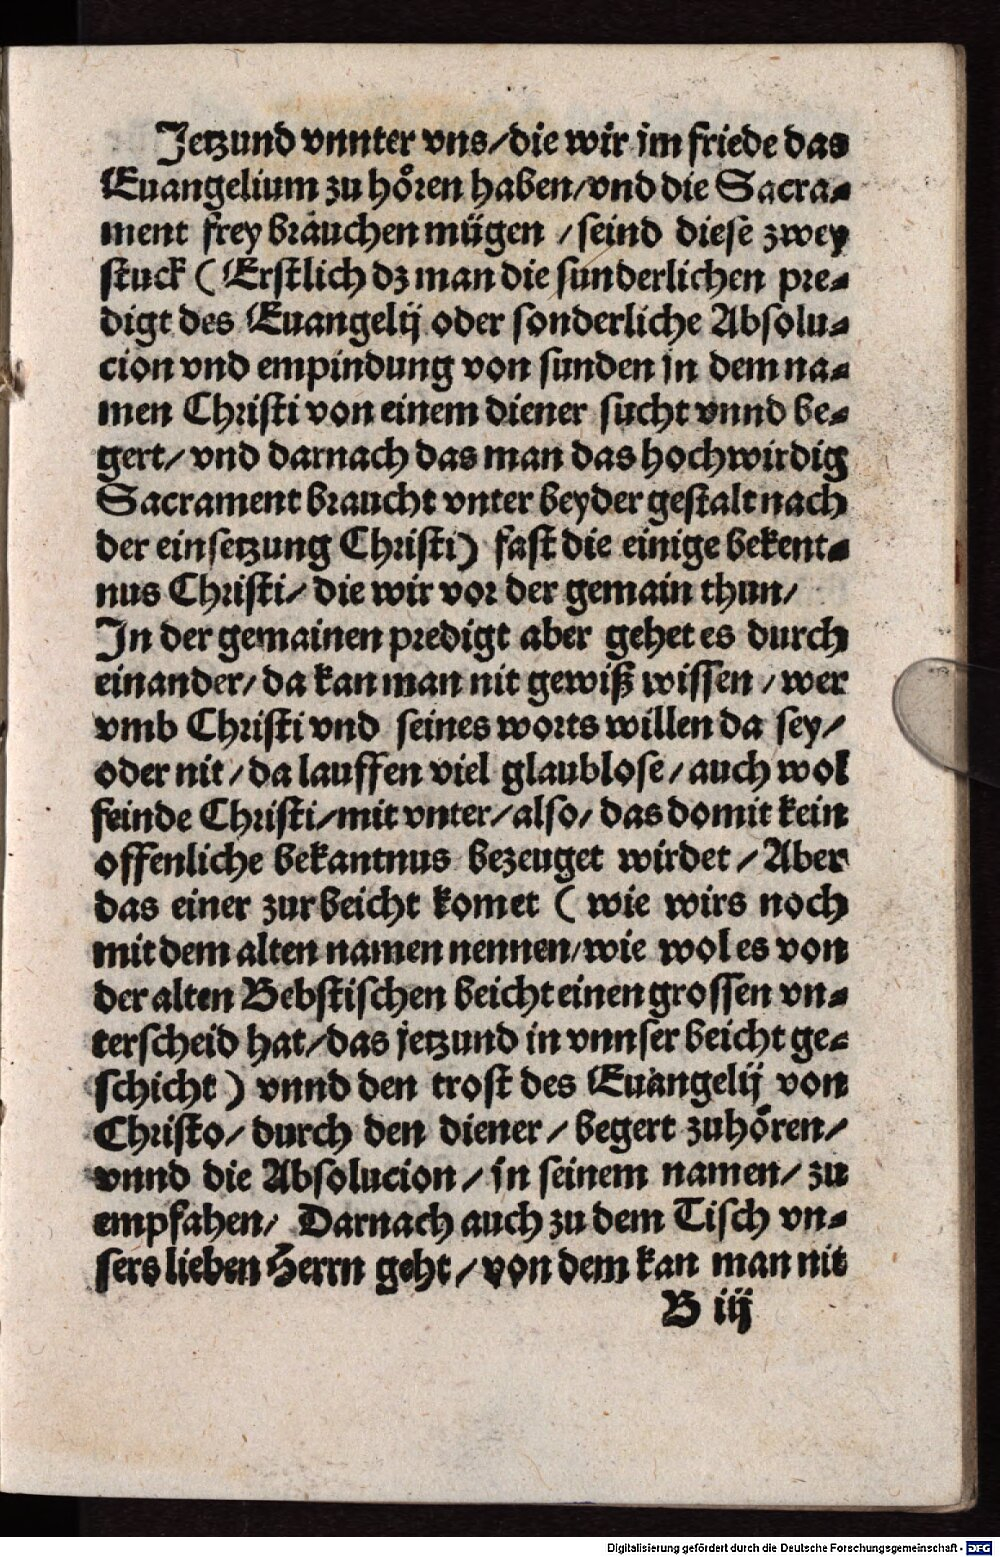 Jetzund vnnter vns/die wir im friede das
Euangelium zu hören haben/vnd die Sacra-
ment frey brauchen mügen /seind diese zwey
stuck (Erstlich dz man die sunderlichen pre-
digt des Euangelij oder sonderliche Absolu-
cion vnd empindung von sunden in dem na-
men Christi von einem diener sucht vnnd be-
gert/ vnd darnach das man das hochwirdig
Sacrament braucht vnter beyder gestalt nach
der einsetzung Christi) fast die einige bekent-
nus Christi/ die wir vor der gemain thun/
In der gemainen predigt aber gehet es durch
einander/ da kan man nit gewiß wissen /wer
vmb Christi vnd seines worts willen da sey/
oder nit/ da lauffen viel glaublose/ auch wol
feinde Christi/mit vnter/also/ das domit kein
offenliche bekantnus bezeuget wirdet/ Aber
das einer zur beicht komet (wie wirs noch
mit dem alten namen nennen/wie wol es von
der alten Bebstischen beicht einen grossen vn-
terscheid hat/das jetzund in vnnser beicht ge-
schicht) vnnd den trost des Euangelij von
Christo/ durch den diener/ begert zuhören/
vnnd die Absolucion/ in seinem namen/ zu
empfahen/ Darnach auch zu dem Tisch vn-
sers lieben Herrn geht/von dem kan man nit
B iij
Digitalisierung gefördert durch die Deutsche Forschungsgemeinschaft - DFG